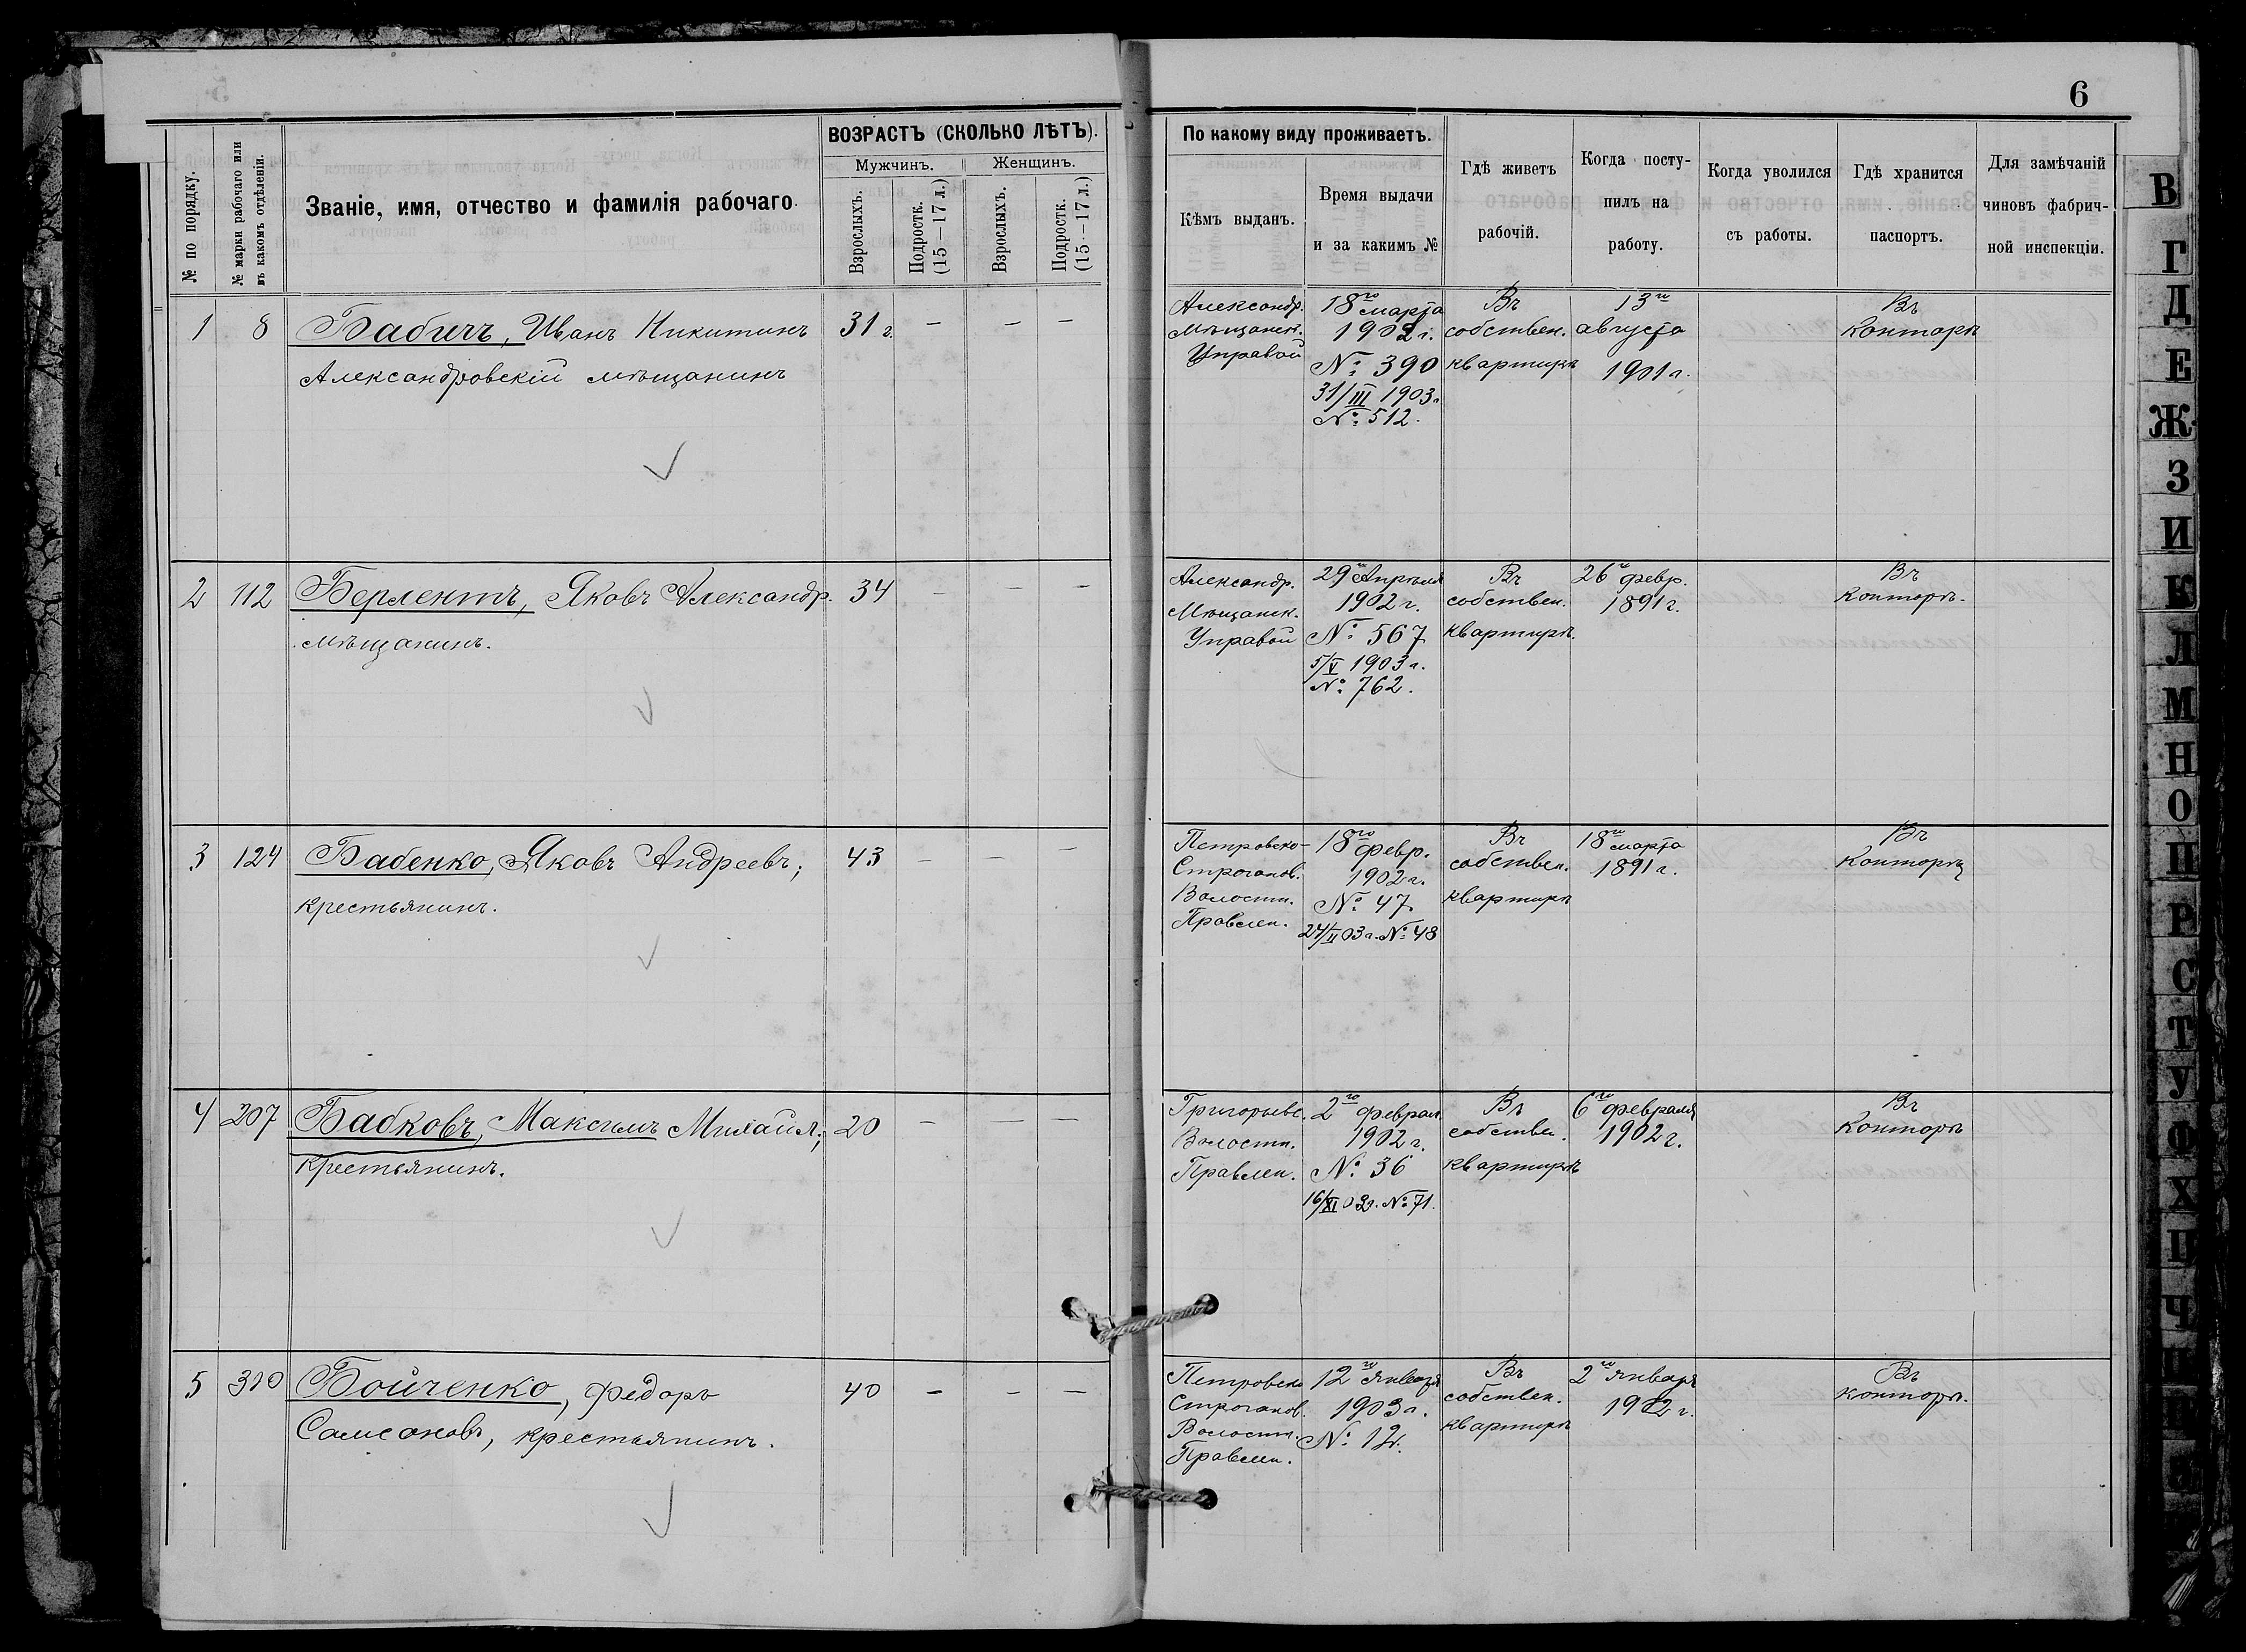 6
ВОЗРАСТЪ (СКОЛЬКО ЛѢТЪ).
Мужчинъ.
Женщинъ.
№ по порядку.
№ марки рабочаго или
въ какомъ отдѣленіи.
Званіе, имя, отчество и фамилія рабочаго.
Взрослыхъ.
Подростк.
(15—17 л.)
Взрослыхъ.
Подростк.
(15—17 л.)
По какому виду проживаетъ.
Кѣмъ выданъ.
Время выдачи
и за какимъ №
Гдѣ живетъ
рабочій.
Когда посту-
пилъ на
работу.
Когда уволился
съ работы.
Гдѣ хранится
паспортъ.
Для замѣчаній
чиновъ фабрич-
ной инспекціи.
1 8 Бабичъ, Иванъ Никитинъ 31 г. — — —
Александровскій мѣщанинъ
Александр.
Мѣщанск.
Управой
18го марта
1902 г.
№ 390
31/III 1903 г.
№ 512.
Въ
собствен.
квартирѣ
13го
августа
1901 г.
Въ
Конторѣ
2 112 Берлентъ, Яковъ Александр. 34 — — —
мѣщанинъ.
Александр.
Мѣщанск.
Управой
29го Апрѣля
1902 г.
№ 567
5/V 1903 г.
№ 762.
Въ
собствен.
квартирѣ.
26го февр.
1891 г.
Въ
Конторѣ.
3 124 Бабенко, Яковъ Андреевъ, 43 — — —
крестьянинъ.
Петровско-
Строганов.
Волостн.
Правлен.
18го февр.
1902 г.
№ 47.
24/II 03 г. № 48
Въ
собствен.
квартирѣ
18го марта
1891 г.
Въ
Конторѣ
4 207 Бабковъ, Максимъ Михайл., 20 — — —
крестьянинъ.
Григорьевс.
Волостн.
Правлен.
2го феврал.
1902 г.
№ 36
16/XI 03 г. № 71.
Въ
собствен.
квартирѣ
6го февраля
1902 г.
Въ
Конторѣ
5 310 Бойченко, Федоръ 40 — — —
Самсоновъ, крестьянинъ.
Петровско
Строганов.
Волостн.
Правлен.
12го января
1903 г.
№ 12.
Въ
собствен.
квартирѣ
2го января
1902 г.
Въ
конторѣ.
В
Г
Д
Е
Ж
З
И
К
Л
М
Н
О
П
Р
С
Т
У
Ф
Х
Ц
Ч